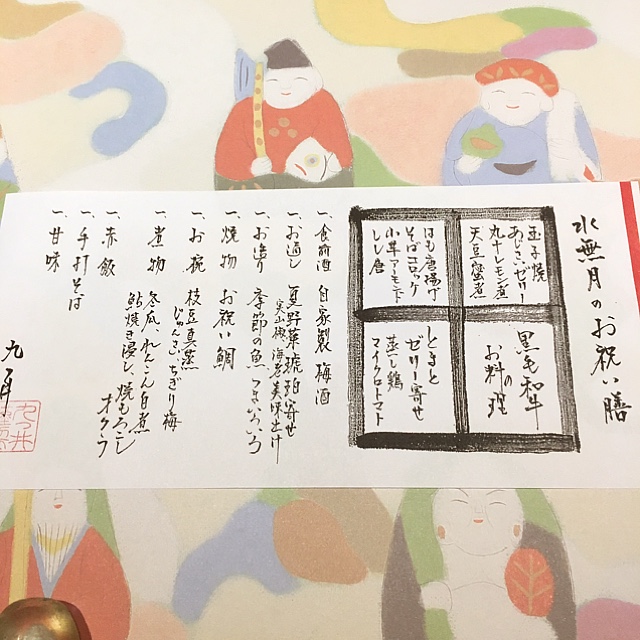 水無月のお祝い膳
玉子焼
あじさいゼリー
九十レモン煮
天豆蜜煮
黒毛和牛
の
お料理
はも唐揚げ
そばコロッケ
小芋アーモンド
しし唐
とまと
ゼリー寄せ
蒸し鶏
マイクロトマト
一、食前酒 自家製梅酒
一、お通し 夏野菜琥珀寄せ
海老美味出汁
一、お造り 季節の魚いろいろ
一、焼物 お祝い鯛
一、お椀 枝豆真蒸
じゅんさい、ちぎり梅
一、煮物 冬瓜、れんこん白煮
鮎焼き浸し、焼もろこし
オクラ
一、赤飯
一、手打そば
一、甘味